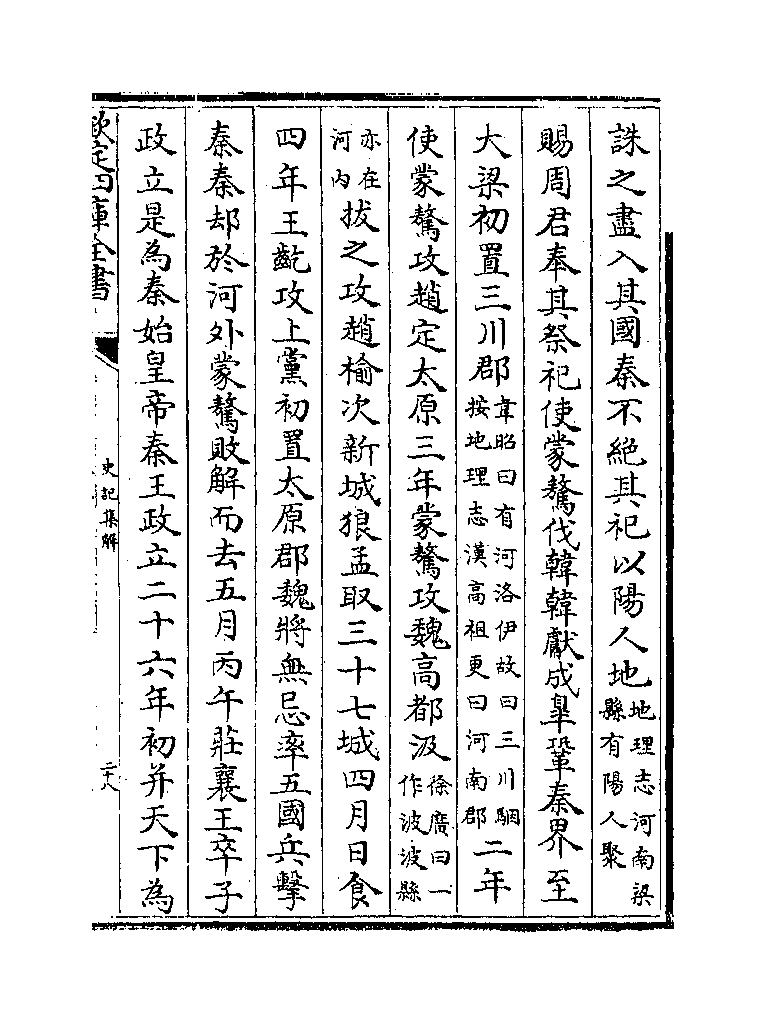 誅之盡入其國秦不絶其祀以陽人地地理志河南梁縣有陽人聚
賜周君奉其祭祀使蒙驁伐韓韓獻成臯鞏秦界至
大梁初置三川郡韋昭曰有河洛伊故曰三川駰按地理志漢高祖更曰河南郡二年
使蒙驁攻趙定太原三年蒙驁攻魏高都汲徐廣曰一作波波縣
亦在河内拔之攻趙榆次新城狼孟取三十七城四月日食
四年王齕攻上黨初置太原郡魏將無忌率五國兵擊
秦秦却於河外蒙驁敗解而去五月丙午莊襄王卒子
政立是為秦始皇帝秦王政立二十六年初并天下為
欽定四庫全書
史記集解
二十八